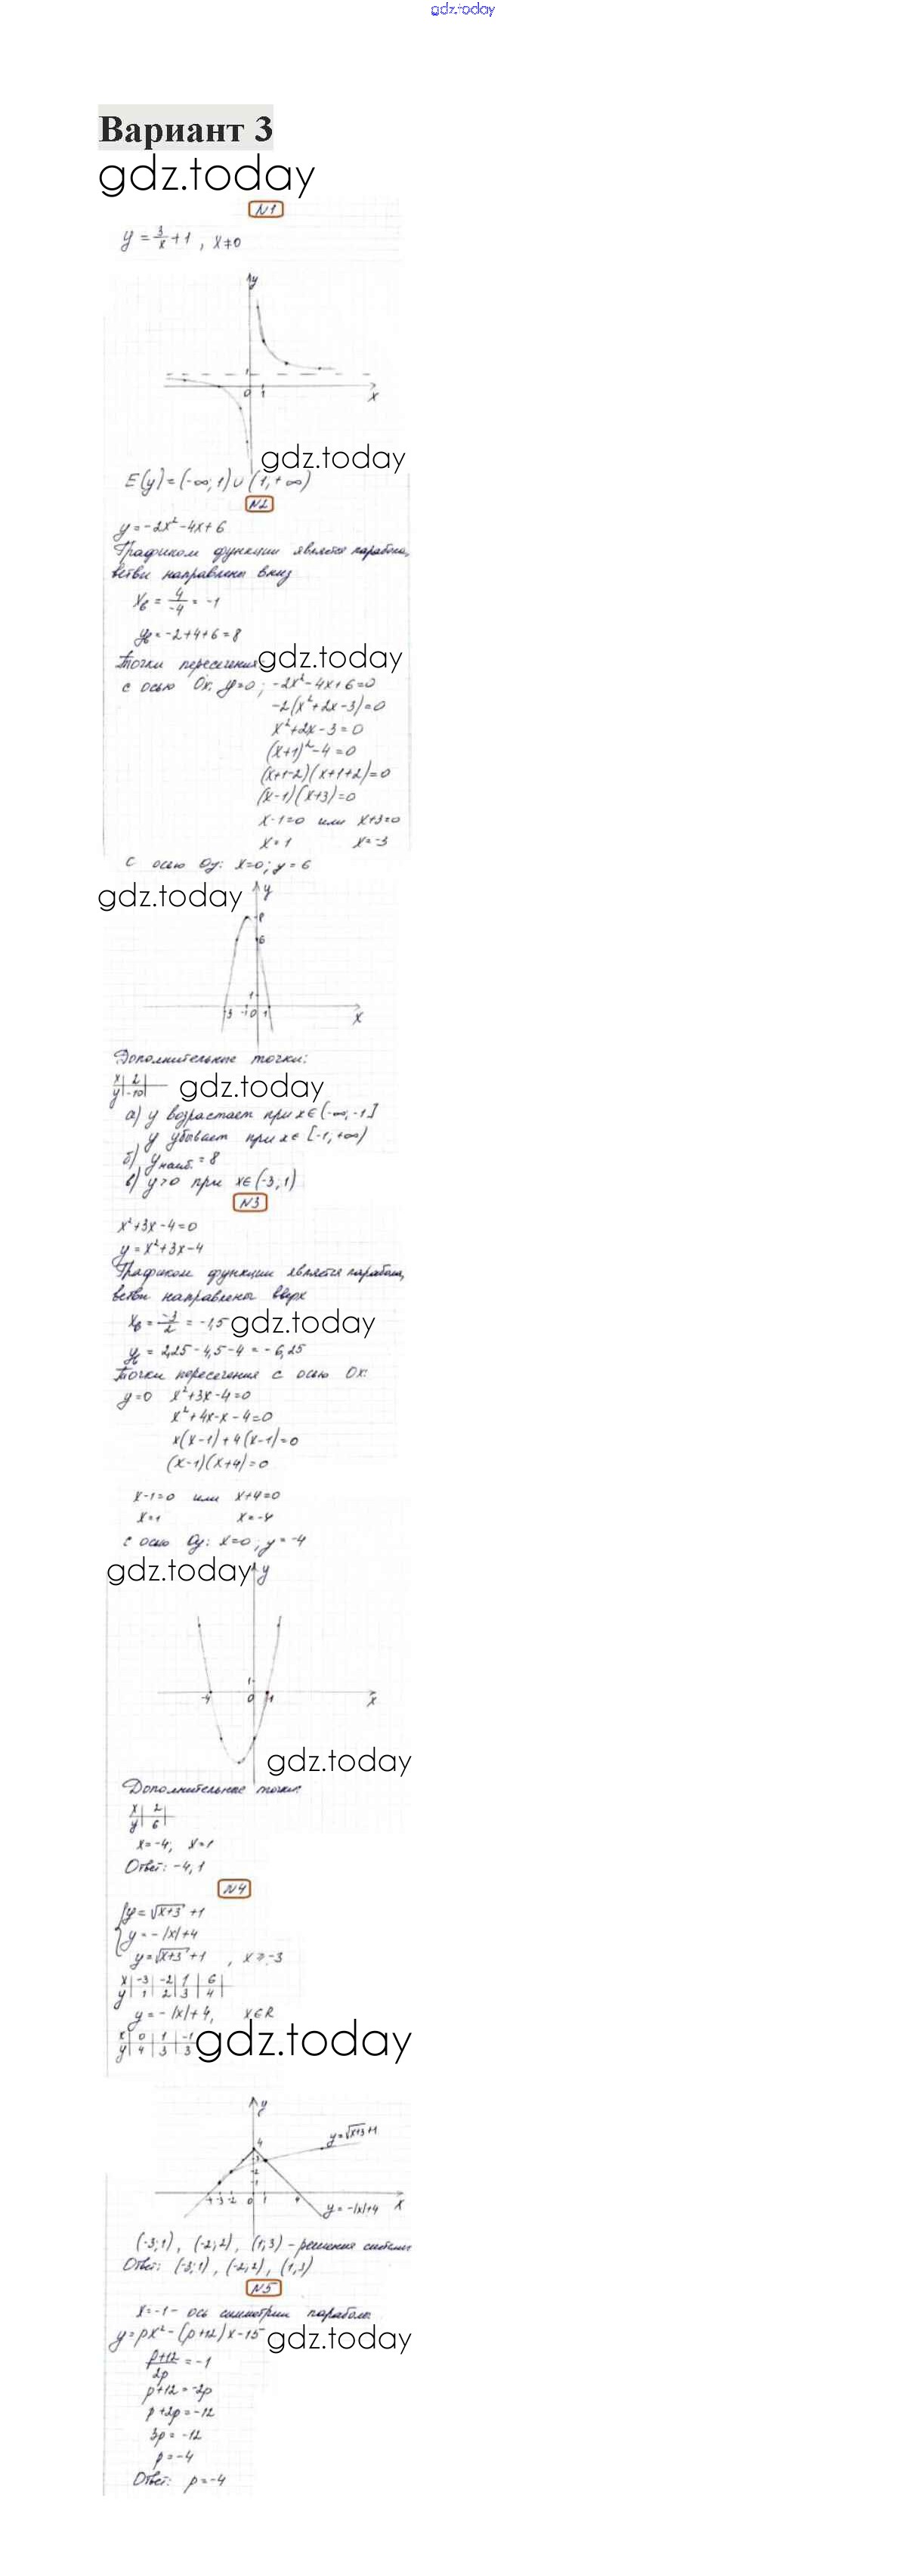 gdz.today
Вариант 3
gdz.today
N1
y = 3/x + 1 , x≠0
y
1
0 1 x
gdz.today
E(y) = (-∞; 1) ∪ (1; +∞)
N2
y = -2x² - 4x + 6
Графиком функции является парабола,
ветви направлены вниз
x_в = 4/-4 = -1
y_в = -2+4+6 = 8
Точки пересечения gdz.today
с осью Ox: y=0; -2x² - 4x + 6 = 0
-2(x² + 2x - 3) = 0
x² + 2x - 3 = 0
(x+1)² - 4 = 0
(x+1-2)(x+1+2) = 0
(x-1)(x+3) = 0
x-1=0 или x+3=0
x=1 x=-3
С осью Oy: x=0; y=6
gdz.today
y
8
6
1
-3 -1 0 1 x
Дополнительные точки:
x | 2
y | -10
gdz.today
а) y возрастает при x∈(-∞; -1]
y убывает при x∈[-1; +∞)
б) y наиб. = 8
в) y>0 при x∈(-3; 1)
N3
x² + 3x - 4 = 0
y = x² + 3x - 4
Графиком функции является парабола,
ветви направлены вверх
x_в = -3/2 = -1,5 gdz.today
y_в = 2,25 - 4,5 - 4 = -6,25
Точки пересечения с осью Ox:
y=0 x² + 3x - 4 = 0
x² + 4x - x - 4 = 0
x(x-1) + 4(x-1) = 0
(x-1)(x+4) = 0
x-1=0 или x+4=0
x=1 x=-4
с осью Oy: x=0; y=-4
gdz.today
y
1
-4 0 1 x
gdz.today
Дополнительные точки:
x | 2
y | 6
x=-4; x=1
Ответ: -4; 1
N4
{ y = √x+3 + 1
y = -|x| + 4
y = √x+3 + 1 , x ≥ -3
x | -3 | -2 | 1 | 6
y | 1 | 2 | 3 | 4
y = -|x| + 4, x∈R
x | 0 | 1 | -1
y | 4 | 3 | 3
gdz.today
y
y = √x+3 + 1
4
3
2
1
-4 -3 -2 0 1 4 x
y = -|x| + 4
(-3; 1), (-2; 2), (1; 3) - решения системы
Ответ: (-3; 1), (-2; 2), (1; 3)
N5
x = -1 - ось симметрии параболы
y = px² - (p+12)x - 15 gdz.today
p+12/2p = -1
p+12 = -2p
p + 2p = -12
3p = -12
p = -4
Ответ: p = -4